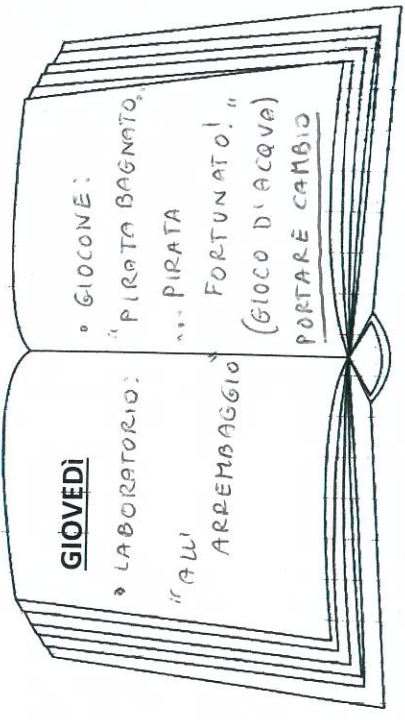 GIOVEDÌ
• LABORATORIO:
"ALL'
ARREMBAGGIO"
• GIOCONE:
"PIRATA BAGNATO,
... PIRATA
FORTUNATO!"
(GIOCO D'ACQUA)
PORTARE CAMBIO